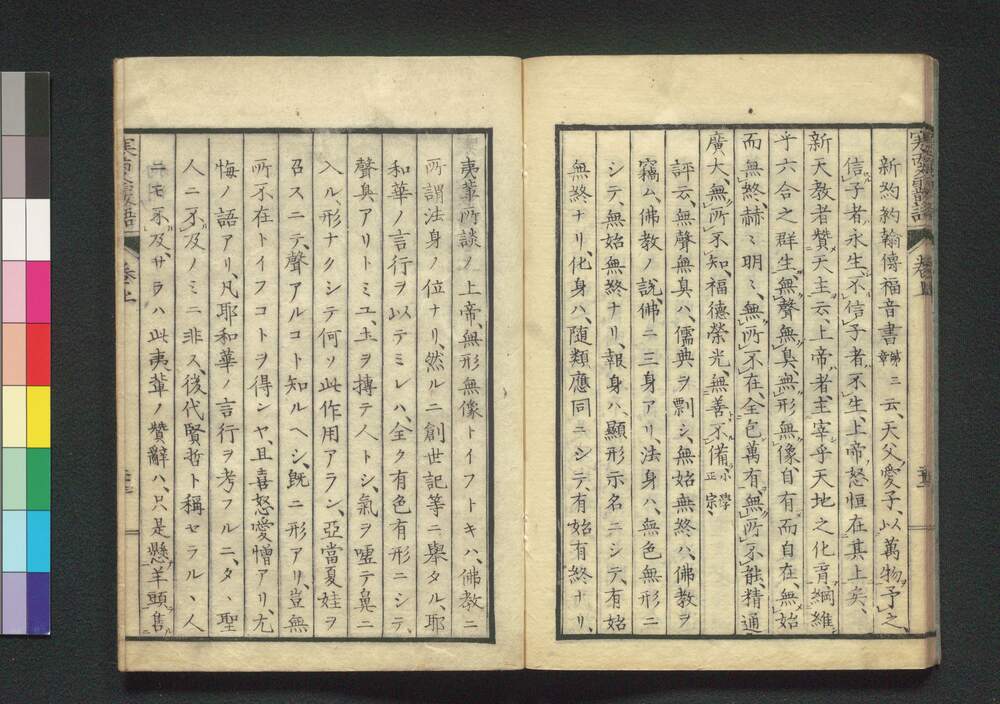 新約約翰傳福音書第三章云、天父愛子、以萬物予之、
信子者永生、不信子者不生、上帝怒恒在其上矣、
新天教者贊天主云、上帝者主宰乎天地之化育、綱維
乎六合之群生、無聲無臭、無形無像、自有而自在、無始
而無終、赫ミ明ミ、無所不在、全包萬有、無所不能、精通
廣大、無所不知、福德榮光、無善不備、小學正宗、
評云、無聲無臭ハ、儒典ヲ剽シ、無始無終ハ、佛教ヲ
竊ム、佛教ノ說、佛ニ三身アリ、法身ハ、無色無形ニ
シテ、無始無終ナリ、報身ハ、顯形示名ニシテ、有始
無終ナリ、化身ハ、隨類應同ニシテ、有始有終ナリ、
夷輩所談ノ上帝、無形無像トイフトキハ、佛教ニ
所謂法身ノ位ナリ、然ルニ創世記等ニ舉タル、耶
和華ノ言行ヲ以テミレハ、全ク有色有形ニシテ、
聲臭アリトミユ、土ヲ摶テ人トシ、氣ヲ噓テ鼻ニ
入ル、形ナクシテ何ソ此作用アラン、亞當夏娃ヲ
召スニテ、聲アルコト知ルヘシ、既ニ形アリ、豈無
所不在トイフコトヲ得ンヤ、且喜怒愛憎アリ、尤
悔ノ語アリ、凡耶和華ノ言行ヲ考フルニ、タヽ聖
人ニ不及ノミニ非ス、後代賢哲ト稱セラルヽ人
ニモ不及、サラハ此夷輩ノ贊辭ハ、只是懸羊頭售
卷上